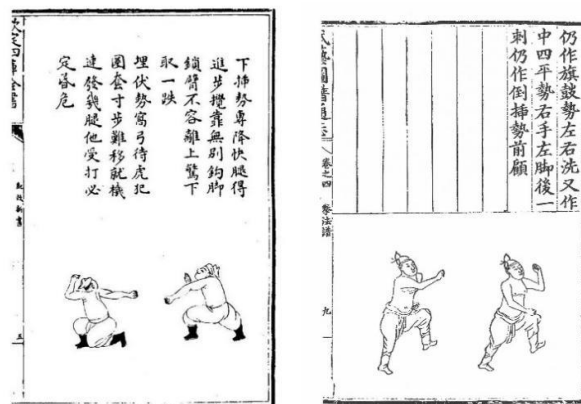 下插勢專降快腿得
進步攪靠無別鈎脚
鎖臂不容離上驚下
取一跌
埋伏勢窩弓待虎犯
圈套寸步難移就機
連發幾腿他受打必
定昏危
欽定四庫全書
紀效新書
三
仍作旗鼓勢左右洗又作
中四平勢右手左脚後一
刺仍作倒揷勢前顧
武藝圖譜通志
卷之四
拳法譜
九